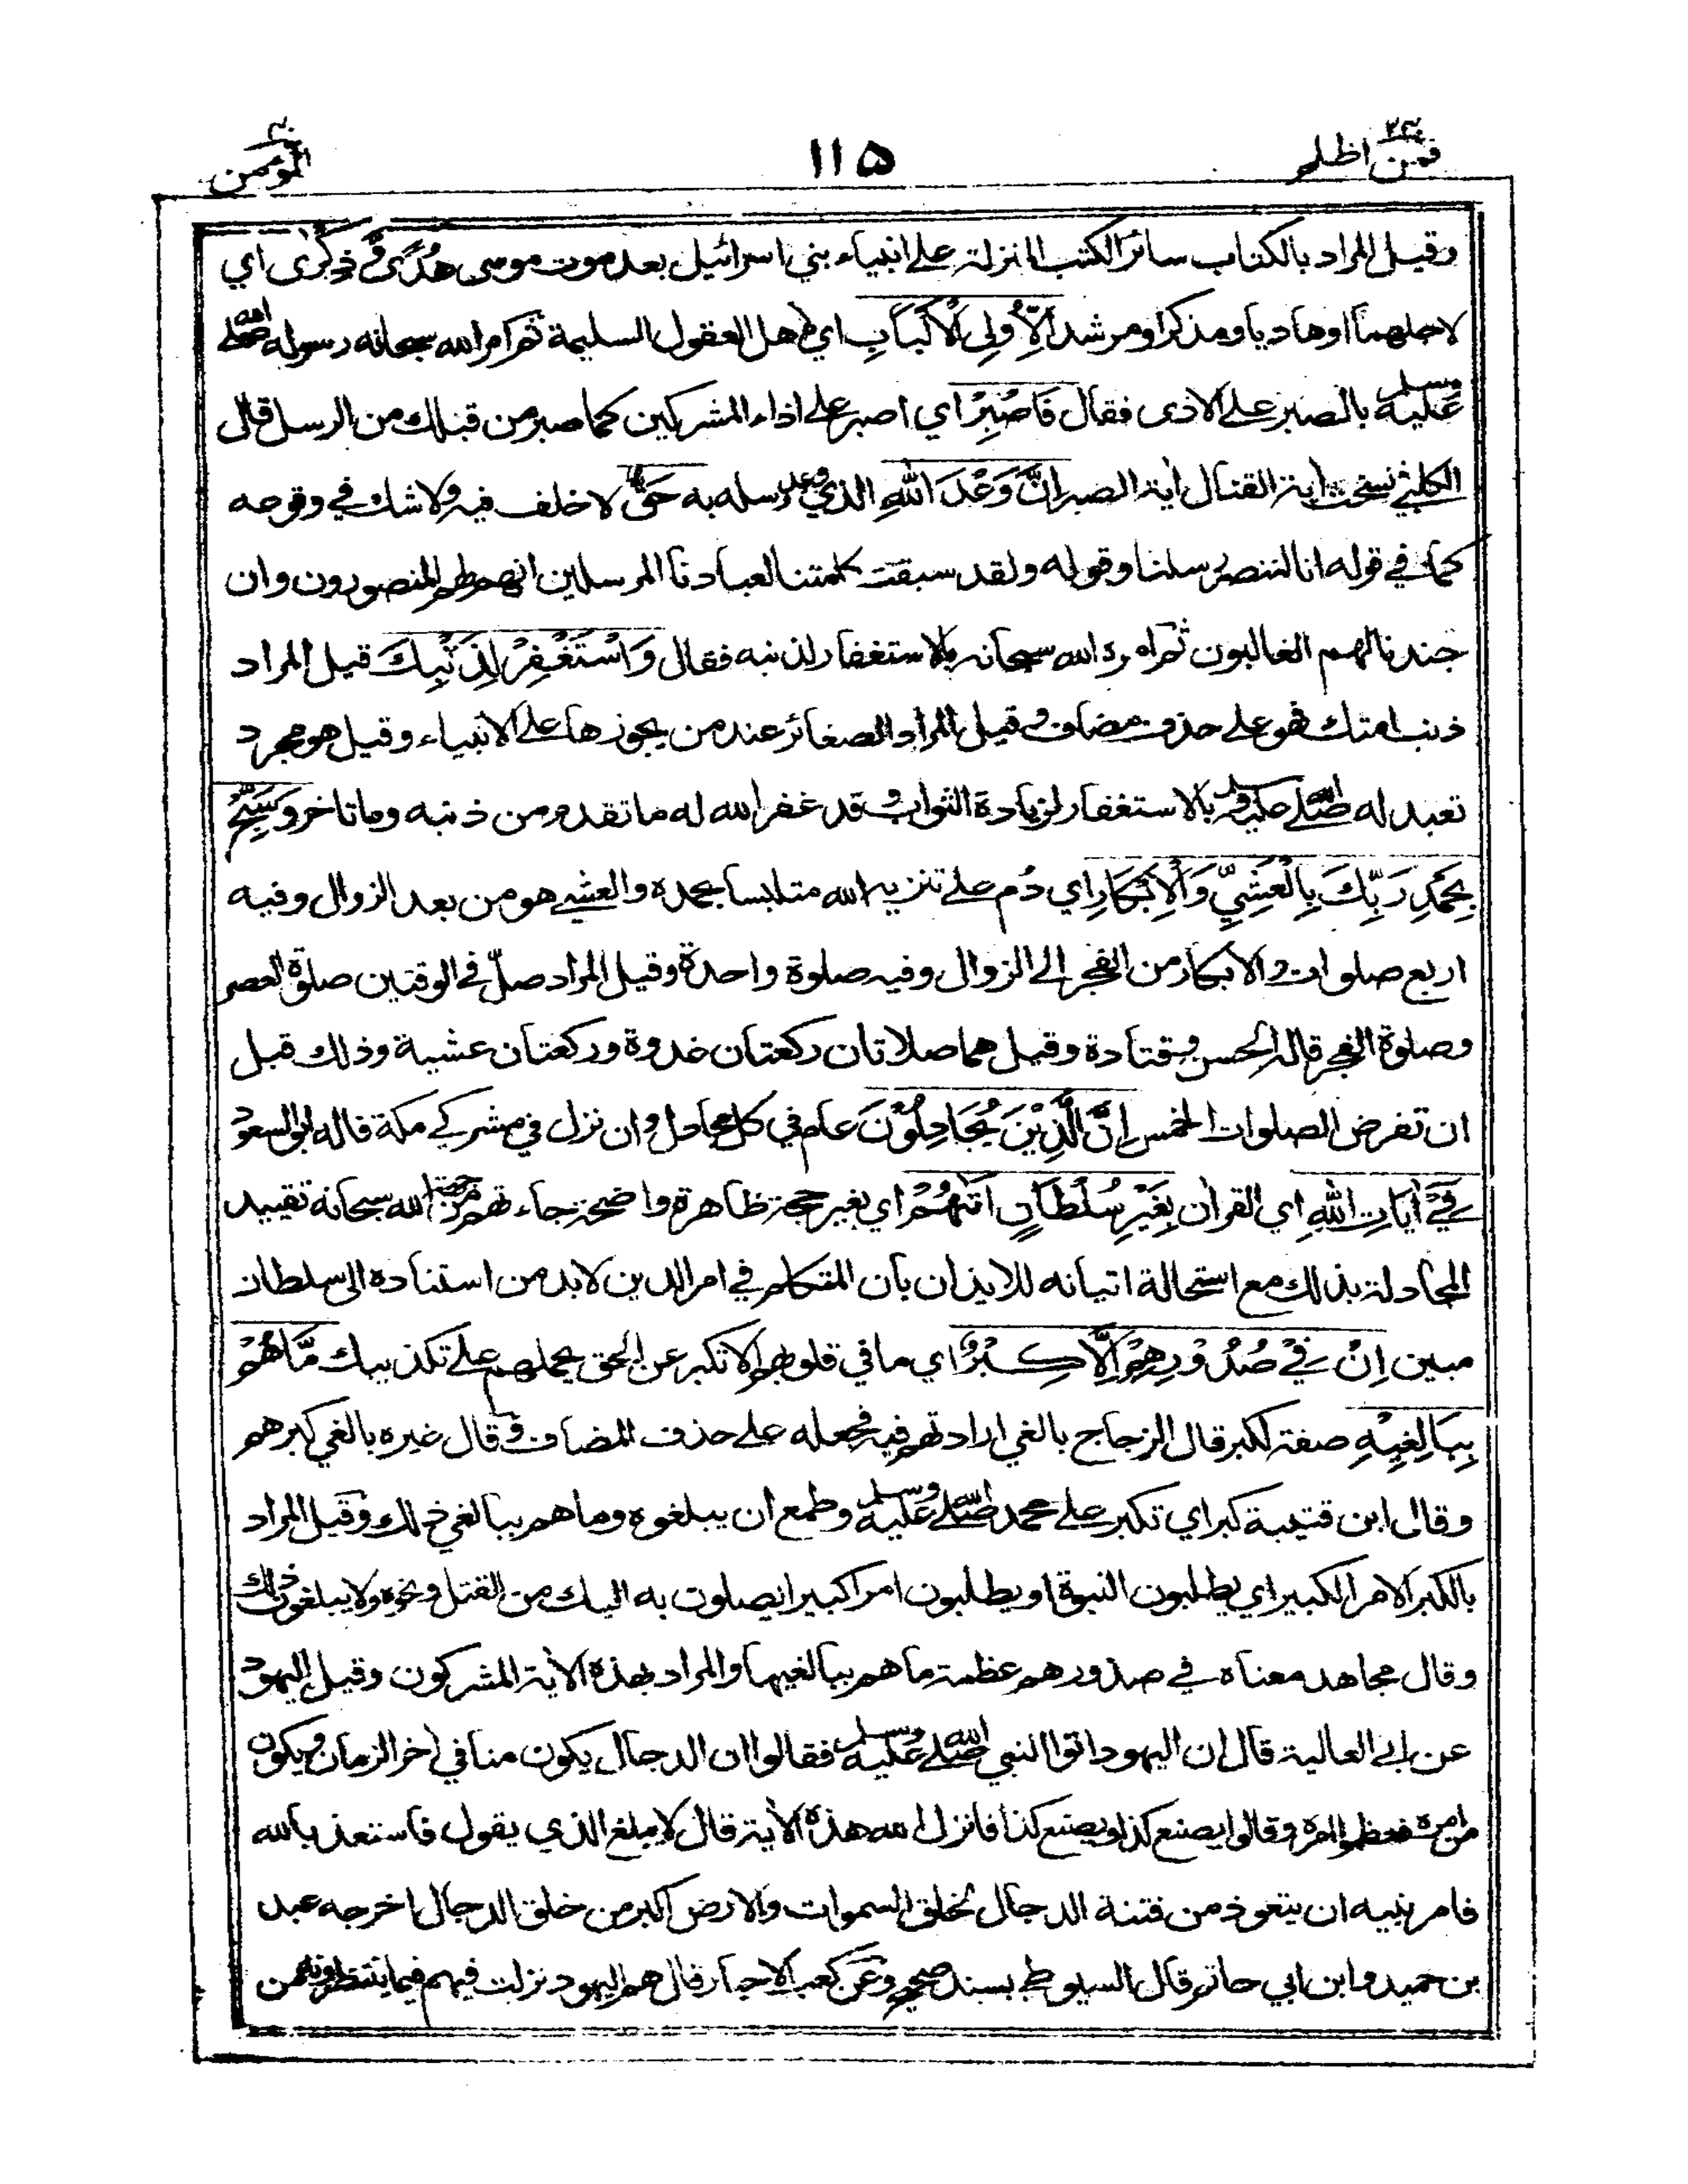 فمن اظلم ٢٤
١١٥
المؤمن ٤٠
وقيل المراد بالكتاب سائر الكتب المنزلة على انبياء بني اسرائيل بعد موت موسى هُدًى وَّذِكْرٰى اي
لاجلهما او هاديا ومذكرا ومرشدا لِاُولِى الْاَلْبَابِ اي لاهل العقول السليمة ثم امر الله سبحانه رسوله صلى الله
عليه وسلم بالصبر على الاذى فقال فَاصْبِرْ اي اصبر على اذاء المشركين كما صبر من قبلك من الرسل قال
الكلبي نسخت اية القتال اية الصبر اِنَّ وَعْدَ اللهِ الذي وعد رسله به حَقٌّ لا خلف فيه ولا شك في وقوعه
كما في قوله انا لننصر رسلنا وقوله ولقد سبقت كلمتنا لعبادنا المرسلين انهم لهم المنصورون وان
جندنا لهم الغالبون ثم امره الله سبحانه بالاستغفار لذنبه فقال وَاسْتَغْفِرْ لِذَنْبِكَ قيل المراد
ذنب امتك فهو على حذف مضاف وقيل المراد الصغائر عند من يجوزها على الانبياء وقيل هو مجرد
تعبد له صلى الله عليه وسلم بالاستغفار لزيادة الثواب وقد غفر الله له ما تقدم من ذنبه وما تاخر وَسَبِّحْ
بِحَمْدِ رَبِّكَ بِالْعَشِيِّ وَالْاِبْكَارِ اي دُم على تنزيه الله متلبسا بحمده والعشي هو من بعد الزوال وفيه
اربع صلوات والابكار من الفجر الى الزوال وفيه صلوة واحدة وقيل المراد صلّ في الوقتين صلوة العصر
وصلوة الفجر قاله الحسن وقتادة وقيل هما صلاتان ركعتان غدوة وركعتان عشية وذلك قبل
ان تفرض الصلوات الخمس اِنَّ الَّذِيْنَ يُجَادِلُوْنَ عام في كل مجادل وان نزل في مشركي مكة قاله ابو السعود
فِيْ اٰيَاتِ اللهِ اي القران بِغَيْرِ سُلْطَانٍ اَتٰهُمْ اي بغير حجة ظاهرة واضحة جاءتهم من جهة الله سبحانه تقييد
المجادلة بذلك مع استحالة اتيانه للايذان بان المتكلم في امر الدين لا بد من استناده الى سلطان
مبين اِنْ فِيْ صُدُوْرِهِمْ اِلَّا كِبْرٌ اي ما في قلوبهم الا تكبر عن الحق يحملهم على تكذيبك مَّا هُمْ
بِبَالِغِيْهِ صفة لكبر قال الزجاج بالغي ارادتهم فيه فجعله على حذف المضاف وقال غيره بالغي كبرهم
وقال ابن قتيبة كبر اي تكبر على محمد صلى الله عليه وسلم وطمع ان يبلغوه وما هم ببالغي ذلك وقيل المراد
بالكبر الامر الكبير اي يطلبون النبوة او يطلبون امرا كبيرا يصلون به اليك من القتل ونحوه ولا يبلغون ذلك
وقال مجاهد معناه في صدورهم عظمة ما هم ببالغيها والمراد بهذه الاية المشركون وقيل اليهود
عن ابي العالية قال ان اليهود اتوا النبي صلى الله عليه وسلم فقالوا ان الدجال يكون منا في اخر الزمان ويكون
من امره فعظموا امره وقالوا يصنع كذا ويصنع كذا فانزل الله هذه الاية قال لا يبلغ الذي يقول فاستعذ بالله
فامر نبيه ان يتعوذ من فتنة الدجال لخلق السموات والارض اكبر من خلق الدجال اخرجه عبد
بن حميد وابن ابي حاتم قال السيوطي بسند صحيح وعن كعب الاحبار قال هم اليهود نزلت فيهم فيما ينتظرونه من